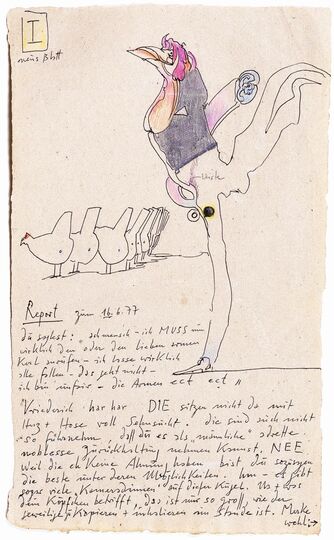 I
neues Blatt
Weste
Report zum 16.6.77
Du sagtest: "ach mensch – ich MUSS nun
wirklich den oder den lieben armen
Kerl anrufen – ich lasse wirklich
alle fallen. Das geht nicht –
ich bin unfair – die Armen ect ect"
"Friederich har har DIE sitzen nicht da mit
Herz + Hose voll Sehnsucht. die sind auch nicht
so führnehm, daß du es als "männliche"
noblesse Zurückhaltung nehmen kannst. NEE
weil die eh keine Ahnung haben bist Du sozusagen
die beste unter deren Möglichkeiten. Um + gibt
sogar viele "Kameradinnen" auf dieser Kugel. Us + das
ein Köpfchen betrifft, das ist nur so groß, wie der
jeweilige zu kopieren + imstande ist. Merke
wohl: →